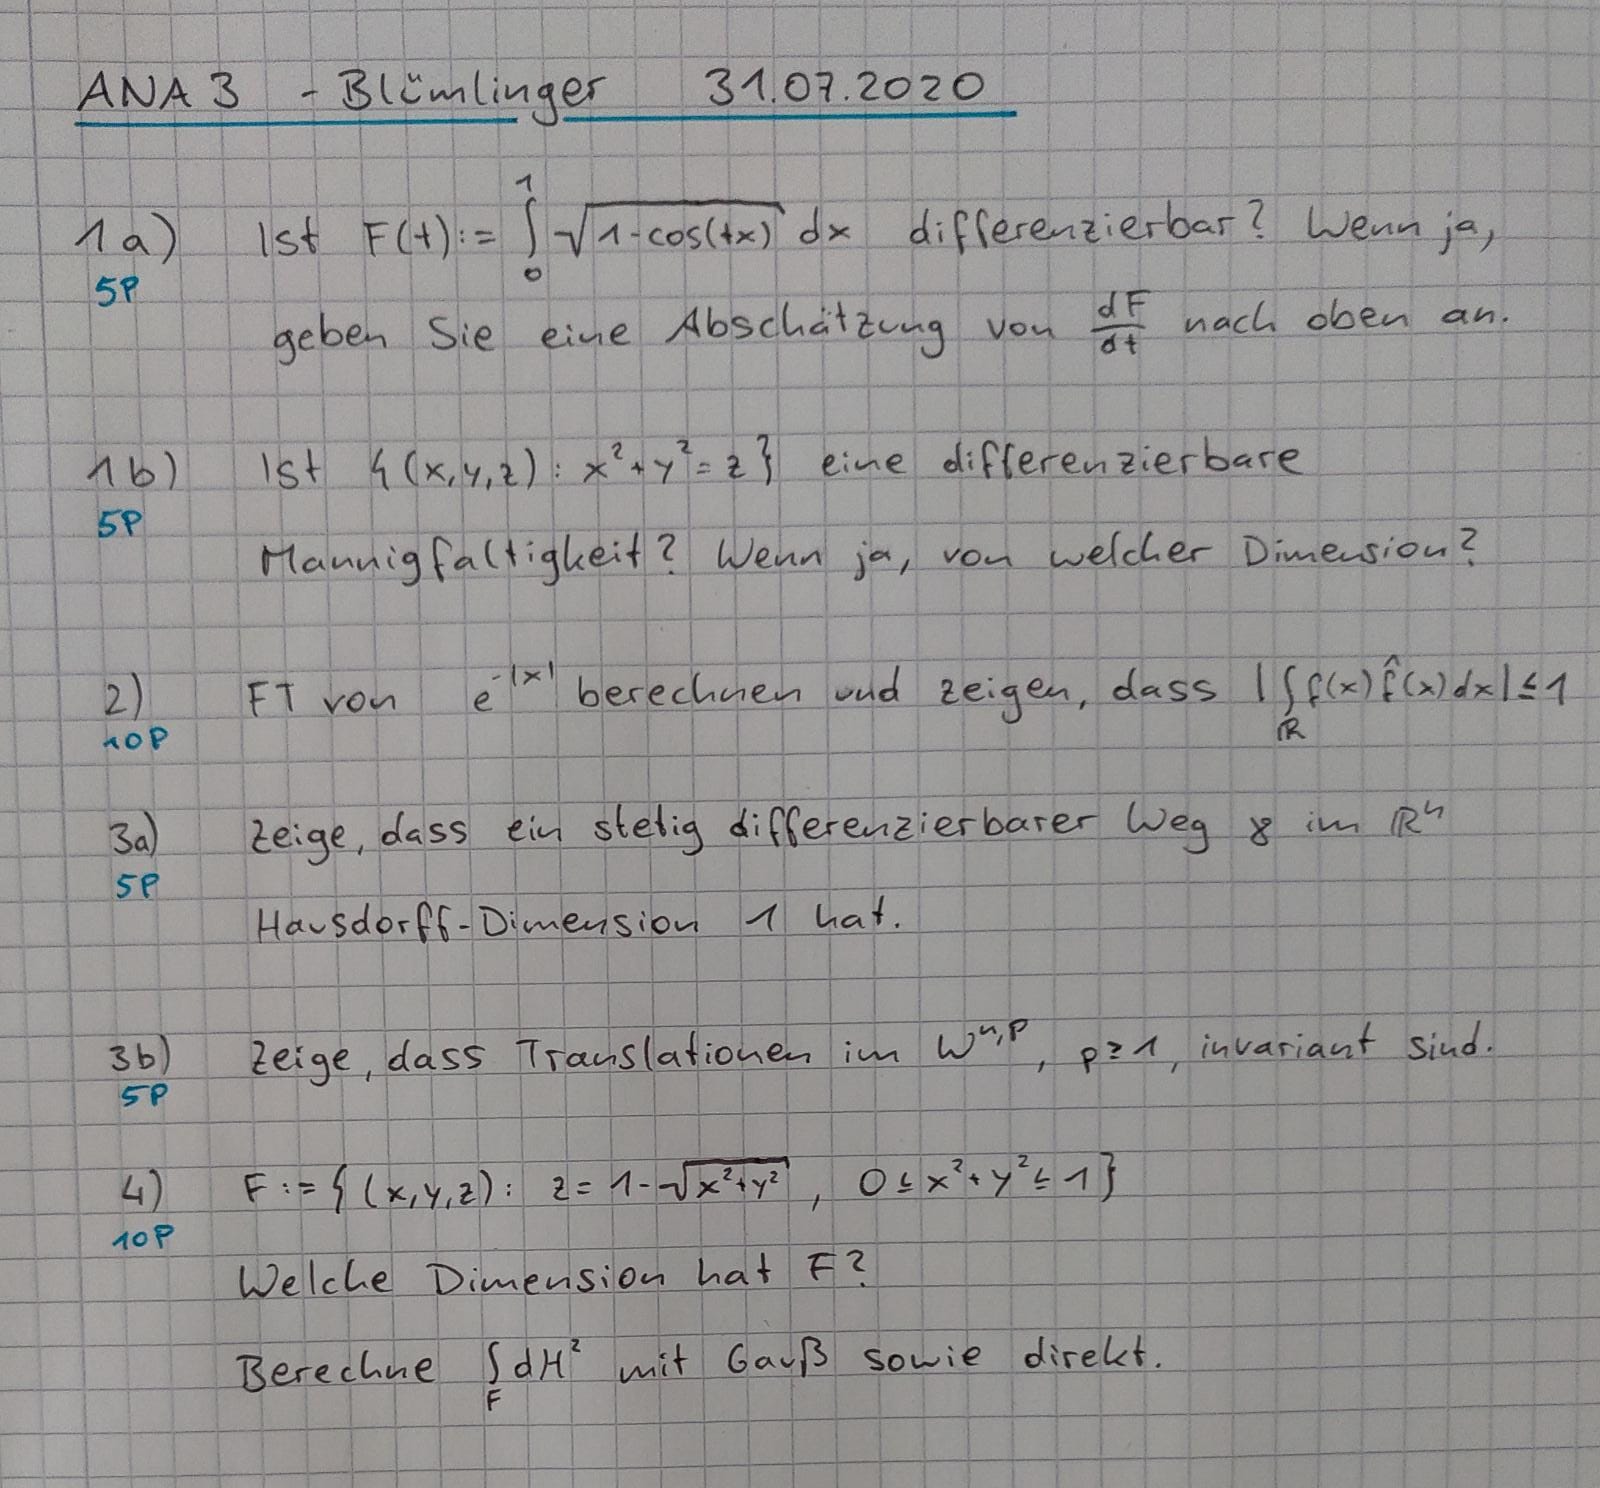 ANA 3 - Blümlinger 31.07.2020
1a) Ist F(t) := ∫₀¹ √(1-cos(tx)) dx differenzierbar? Wenn ja,
5P
geben Sie eine Abschätzung von dF/dt nach oben an.
1b) Ist {(x,y,z) : x²+y²=z} eine differenzierbare
5P
Mannigfaltigkeit? Wenn ja, von welcher Dimension?
2) FT von e^-|x| berechnen und zeigen, dass |∫_ℝ f(x) f̂(x) dx| ≤ 1
10P
3a) Zeige, dass ein stetig differenzierbarer Weg γ im ℝⁿ
5P
Hausdorff-Dimension 1 hat.
3b) Zeige, dass Translationen im W^n,p, p≥1, invariant sind.
5P
4) F := {(x,y,z) : z = 1-√(x²+y²), 0 ≤ x²+y² ≤ 1}
10P
Welche Dimension hat F?
Berechne ∫_F dH² mit Gauß sowie direkt.